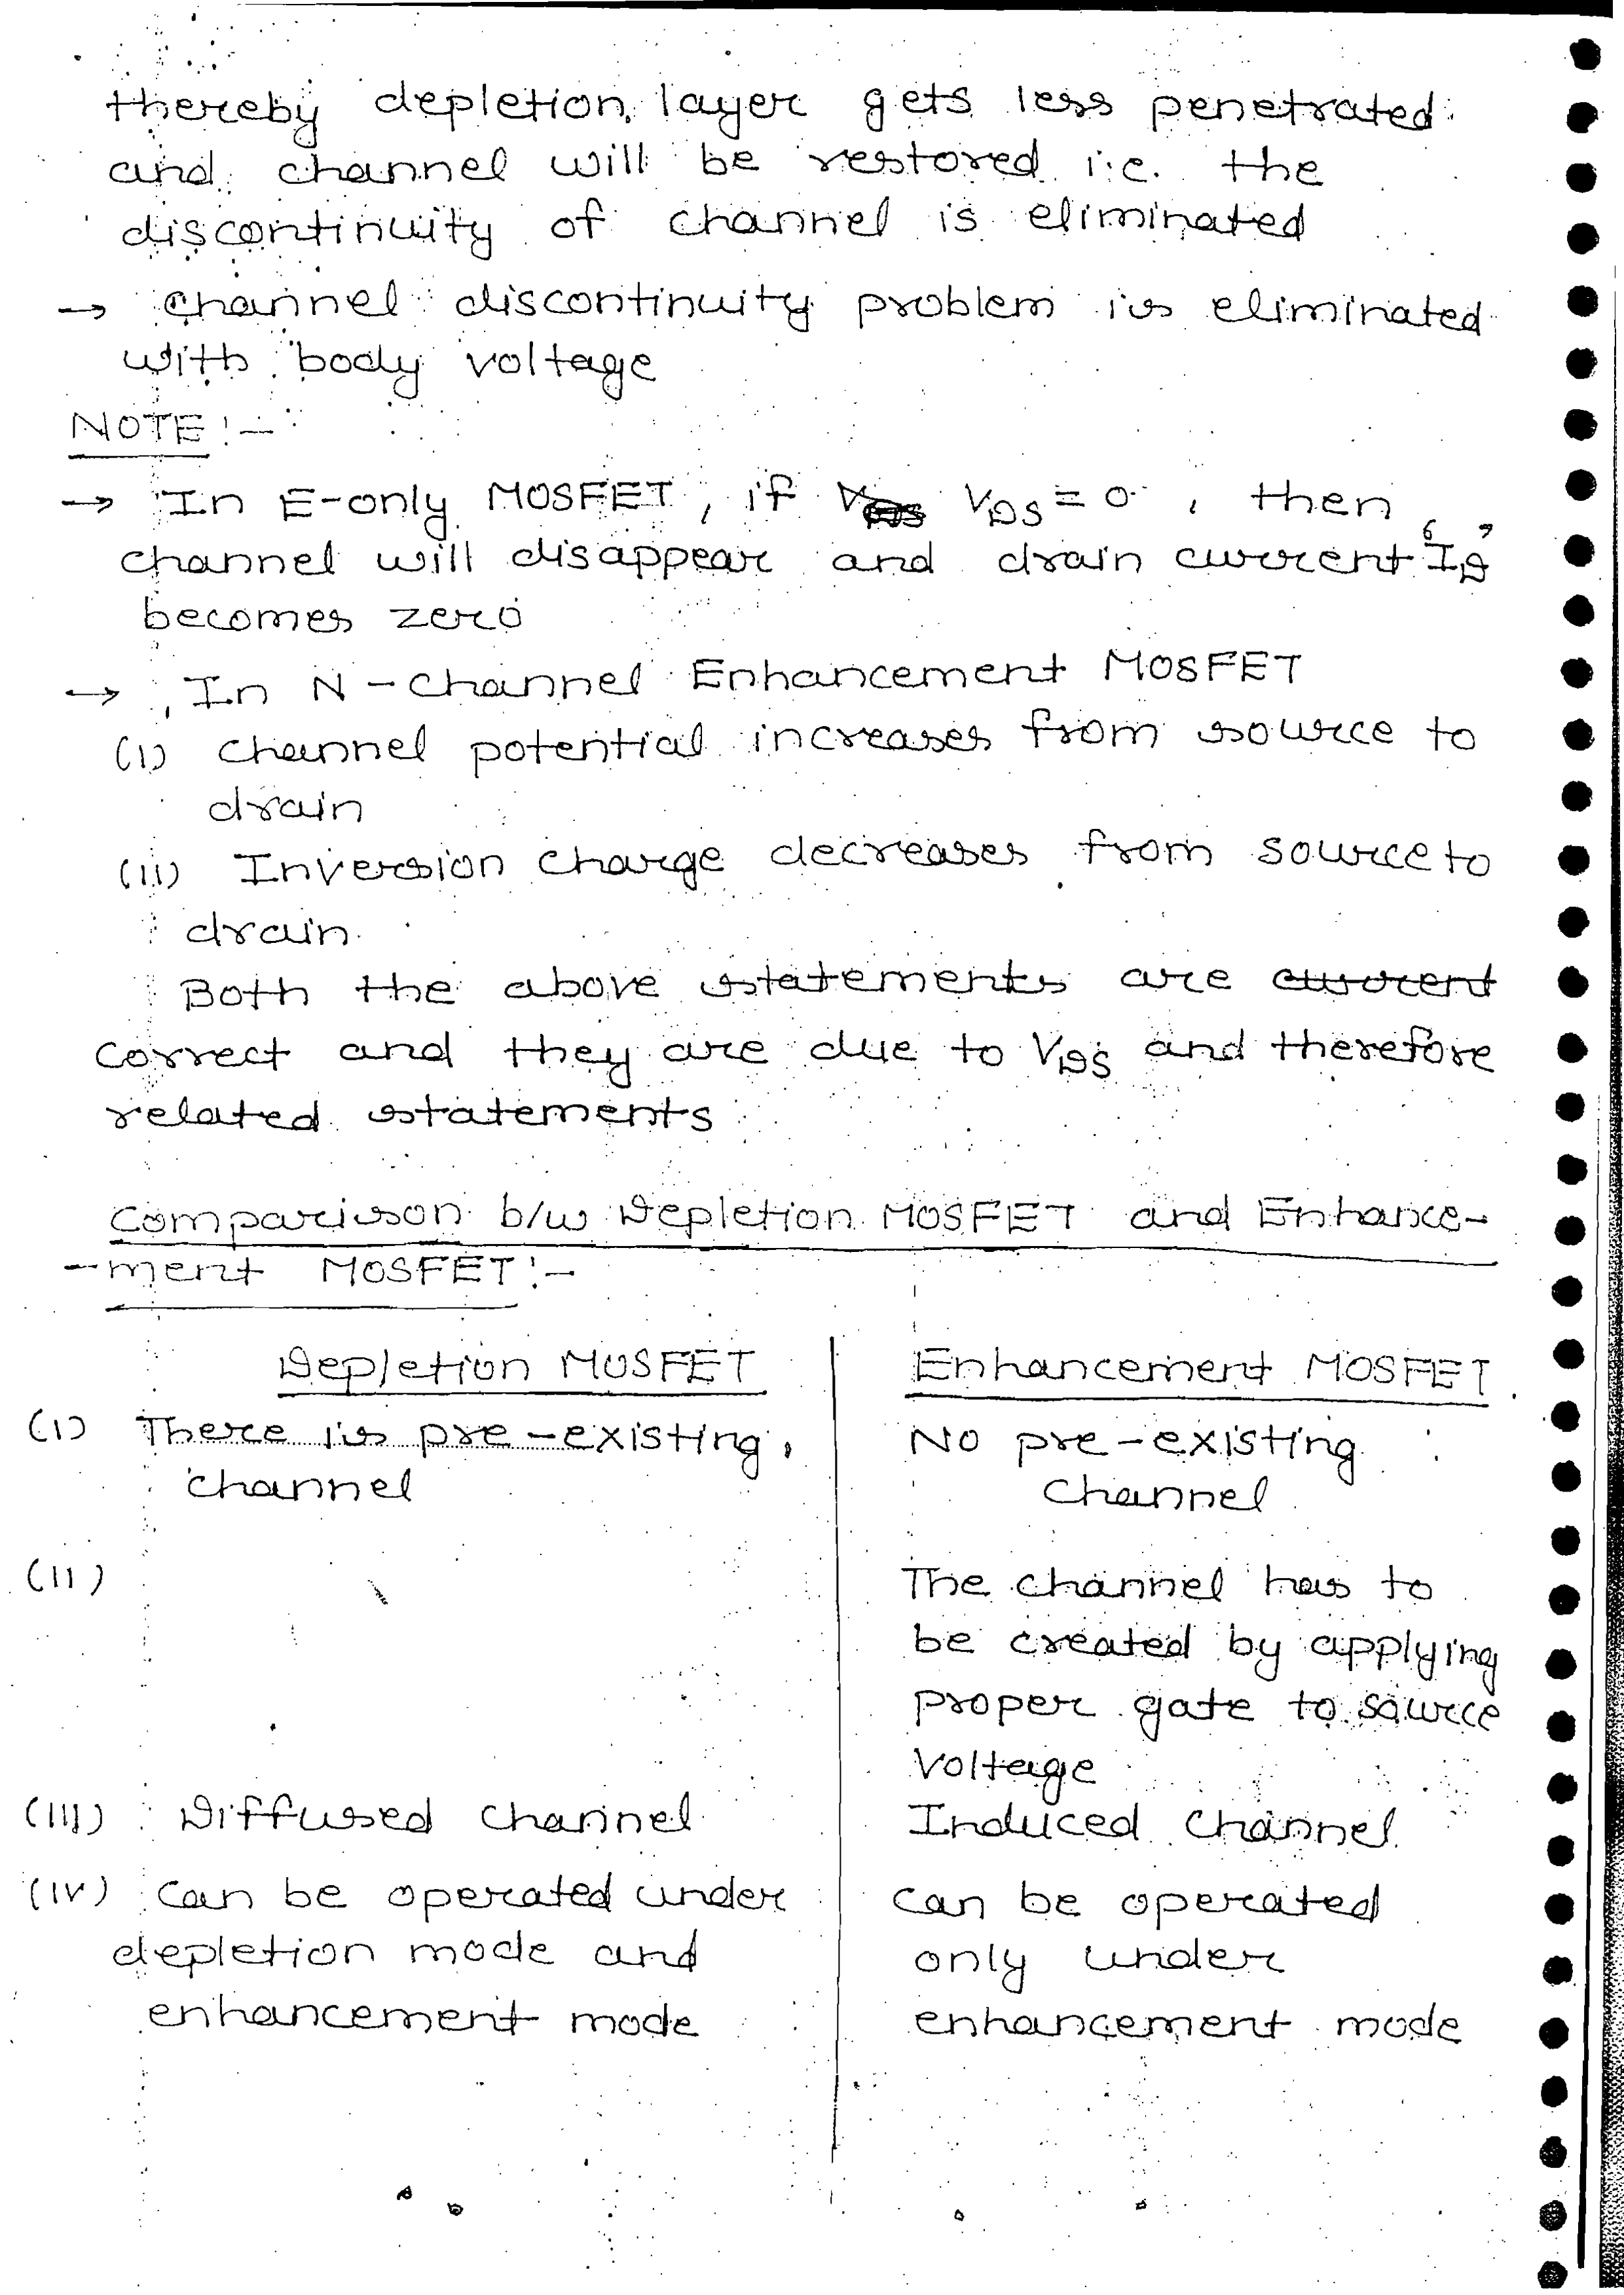 thereby depletion layer gets less penetrated
and channel will be restored i.e. the
discontinuity of channel is eliminated
→ channel discontinuity problem is eliminated
with body voltage
NOTE :-
→ In E-only MOSFET, if VDS = 0, then
channel will disappear and drain current 'ID'
becomes zero
→ In N-channel Enhancement MOSFET
(i) channel potential increases from source to
drain
(ii) Inversion charge decreases from source to
drain
Both the above statements are current
correct and they are due to VDS and therefore
related statements
Comparison b/w Depletion MOSFET and Enhance-
-ment MOSFET :-
Depletion MOSFET Enhancement MOSFET
(i) There is pre-existing No pre-existing
channel channel
(ii) The channel has to
be created by applying
proper gate to source
voltage
(iii) Diffused channel Induced channel
(iv) Can be operated under can be operated
depletion mode and only under
enhancement mode enhancement mode